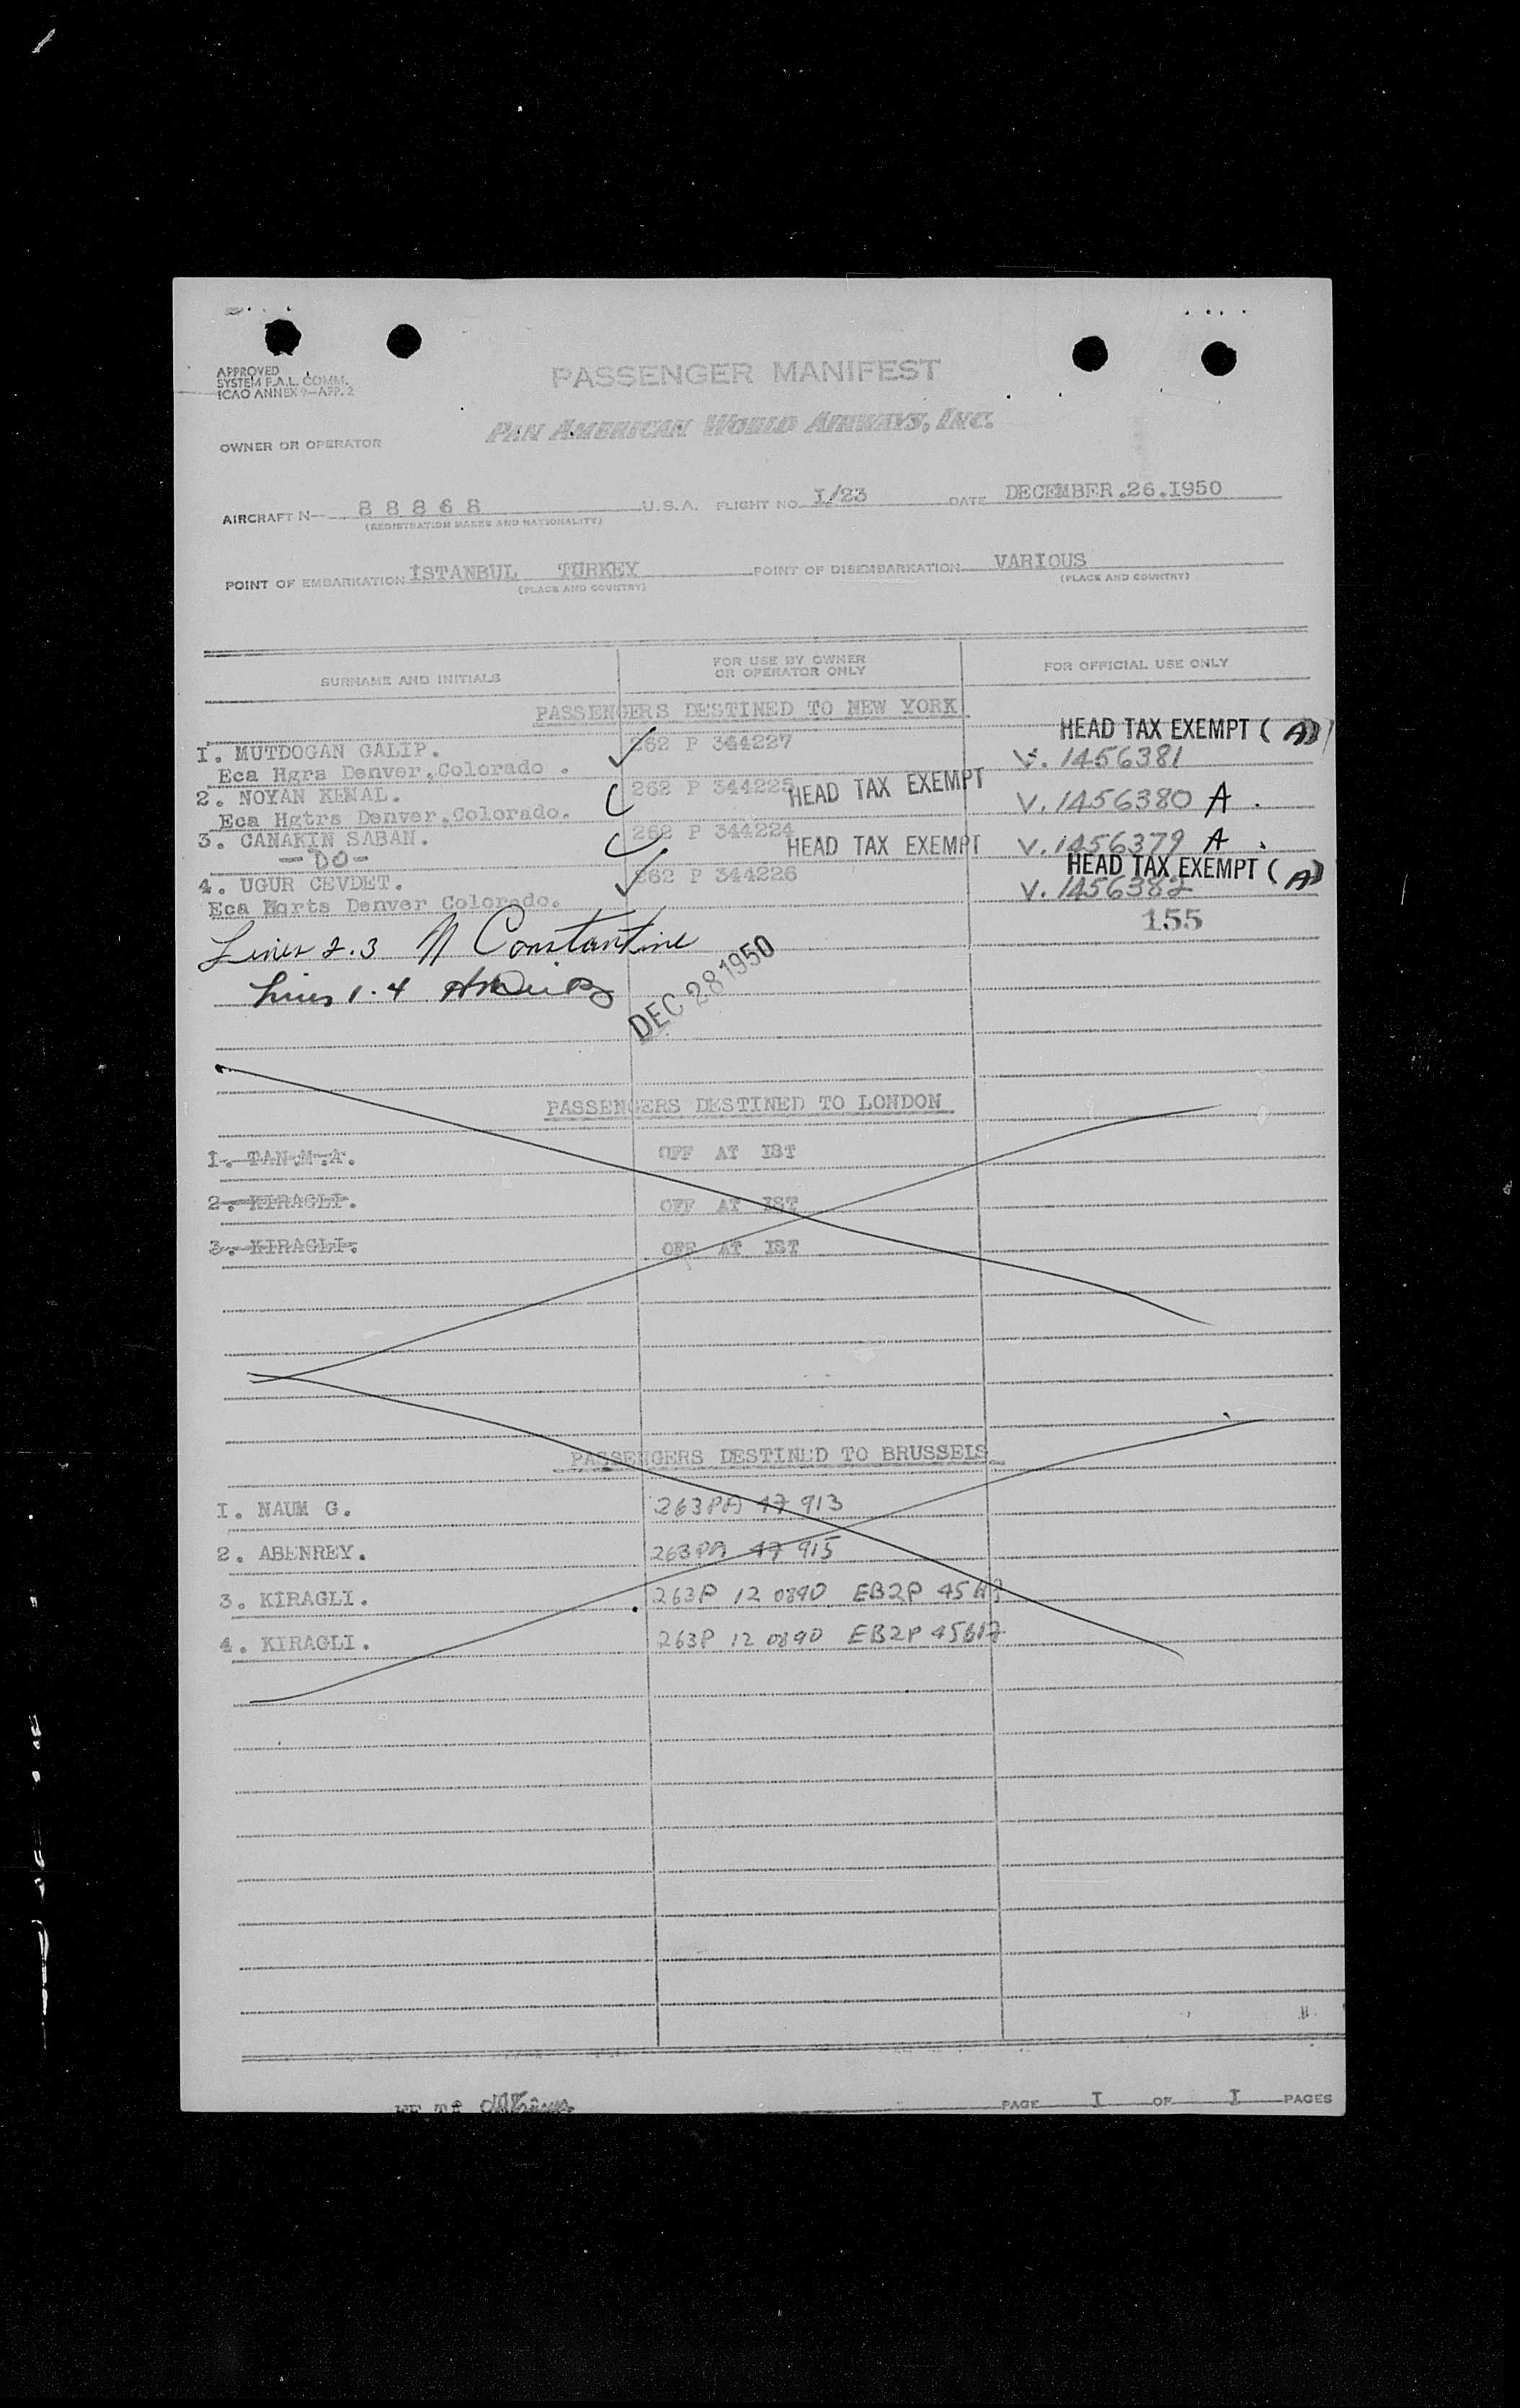 APPROVED
SYSTEM F.A.L. COMM.
ICAO ANNEX 9-APP. 2
PASSENGER MANIFEST
OWNER OR OPERATOR PAN AMERICAN WORLD AIRWAYS, INC.
AIRCRAFT N- 88868 U.S.A. FLIGHT NO. I/23 DATE DECEMBER.26.I950
(REGISTRATION MARKS AND NATIONALITY)
POINT OF EMBARKATION ISTANBUL TURKEY POINT OF DISEMBARKATION VARIOUS
(PLACE AND COUNTRY) (PLACE AND COUNTRY)
SURNAME AND INITIALS FOR USE BY OWNER OR OPERATOR ONLY FOR OFFICIAL USE ONLY
PASSENGERS DESTINED TO NEW YORK
HEAD TAX EXEMPT (A)
I. MUTDOGAN GALIP. 262 P 344227 V. 1456381
Eca Hgrs Denver.Colorado .
2. NOYAN KEMAL. 262 P 344225 HEAD TAX EXEMPT V. 1456380 A.
Eca Hgtrs Denver.Colorado.
3. CANAKIN SABAN. 262 P 344224 HEAD TAX EXEMPT V. 1456379 A.
-DO-
HEAD TAX EXEMPT (A)
4. UGUR CEVDET. 262 P 344226 V. 1456382
Eca Hqrts Denver Colorado.
155
Lines 2.3 N Constantine
Lines 1.4
DEC 28 1950
PASSENGERS DESTINED TO LONDON
1. TAN.M.A. OFF AT IST
2. KIRAGLI. OFF AT IST
3. KIRAGLI. OFF AT IST
PASSENGERS DESTINED TO BRUSSELS
I. NAUM G. 263PA 47 913
2. ABENREY. 263PA 47 915
3. KIRAGLI. 263P 12 0890 EB2P
4. KIRAGLI. 263P 12 0890 EB2P 45617
PAGE I OF I PAGES